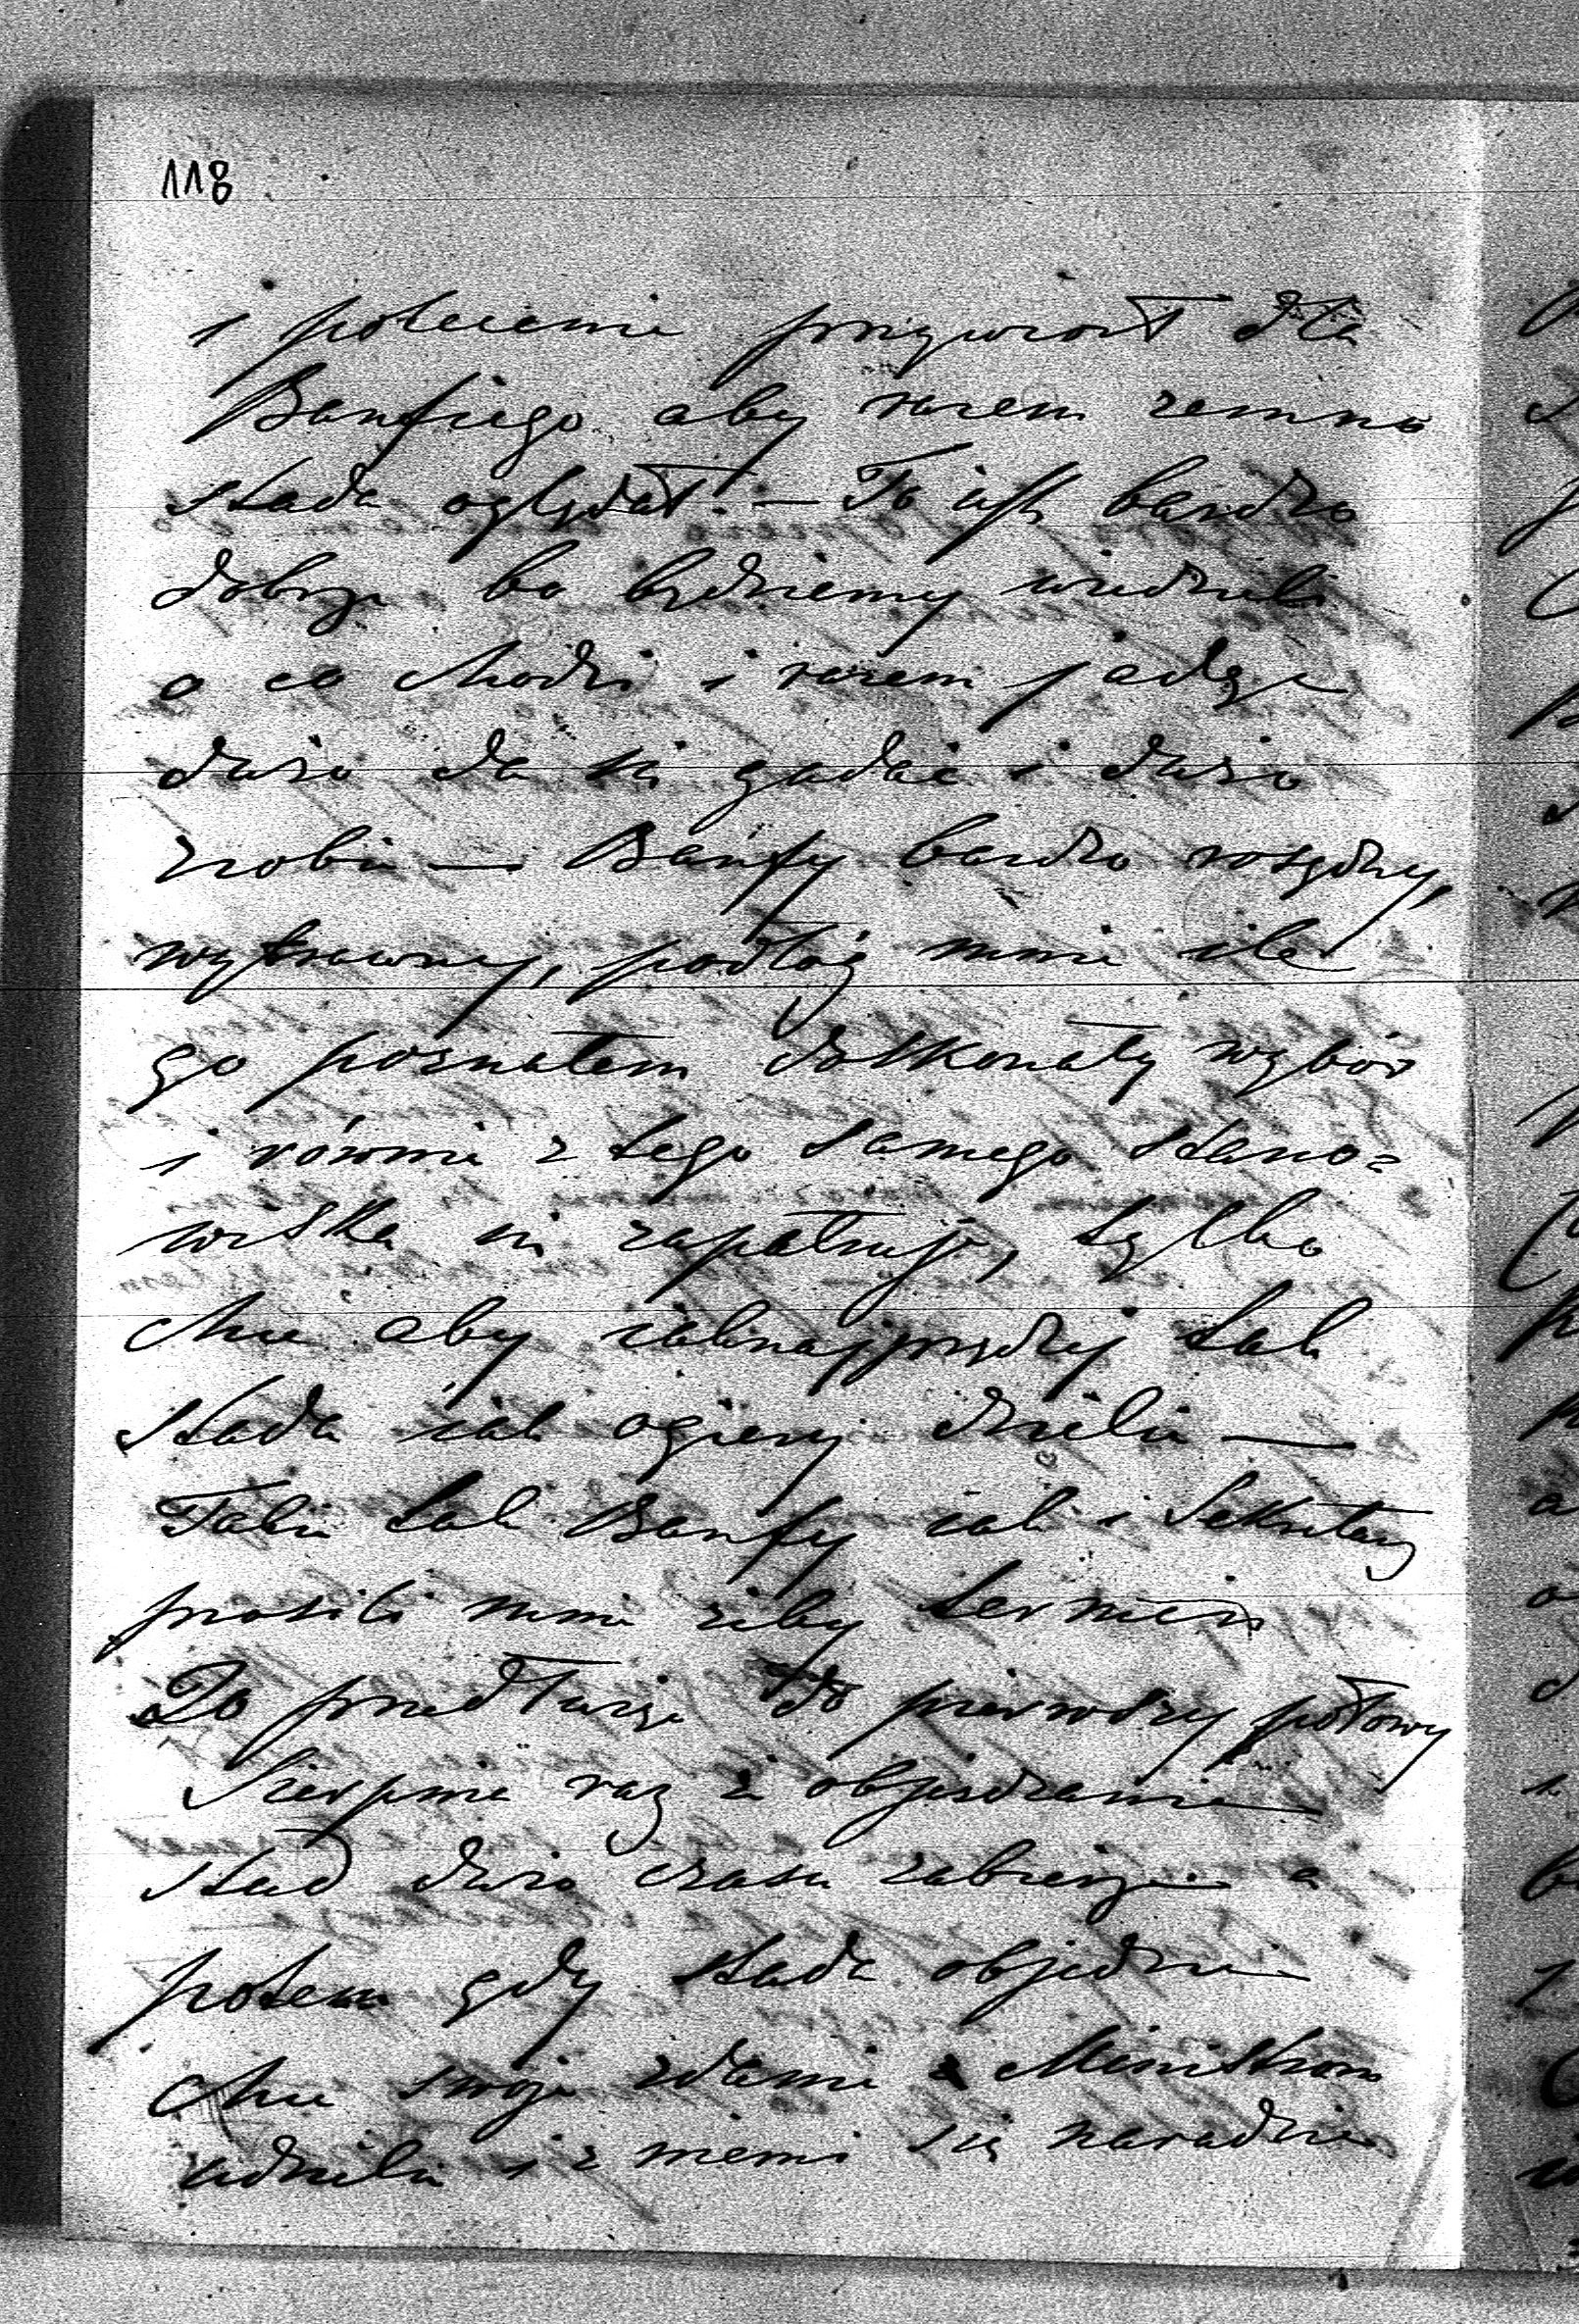 118
i polecenie przywiozł dla
Banfiego aby razem zemno
stada oglądał. — To jest bardzo
dobrze bo będziemy wiedzieli
o co chodzi i razem jadąc
dużo da się gadać i dużo
zrobić — Banfy bardzo rosądny,
wytrawny, podług mnie ile
go poznałem doskonały wybór
i równie z tego samego stano=
wiska się zapatruje, tylko
chce aby jaknajprędzej tak
stada jak ogiery dzielić —
Także tak Banfy jak i Sekretarz
prosili mnie żeby termin
do przedłużyć do pierwszy połowy
Sierpnia raz że objeżdżanie
stad dużo czasu zabierze a
potem gdy stada objedzie
chce swoje zdanie Ministrom
udzielić i z niemi się naradzić